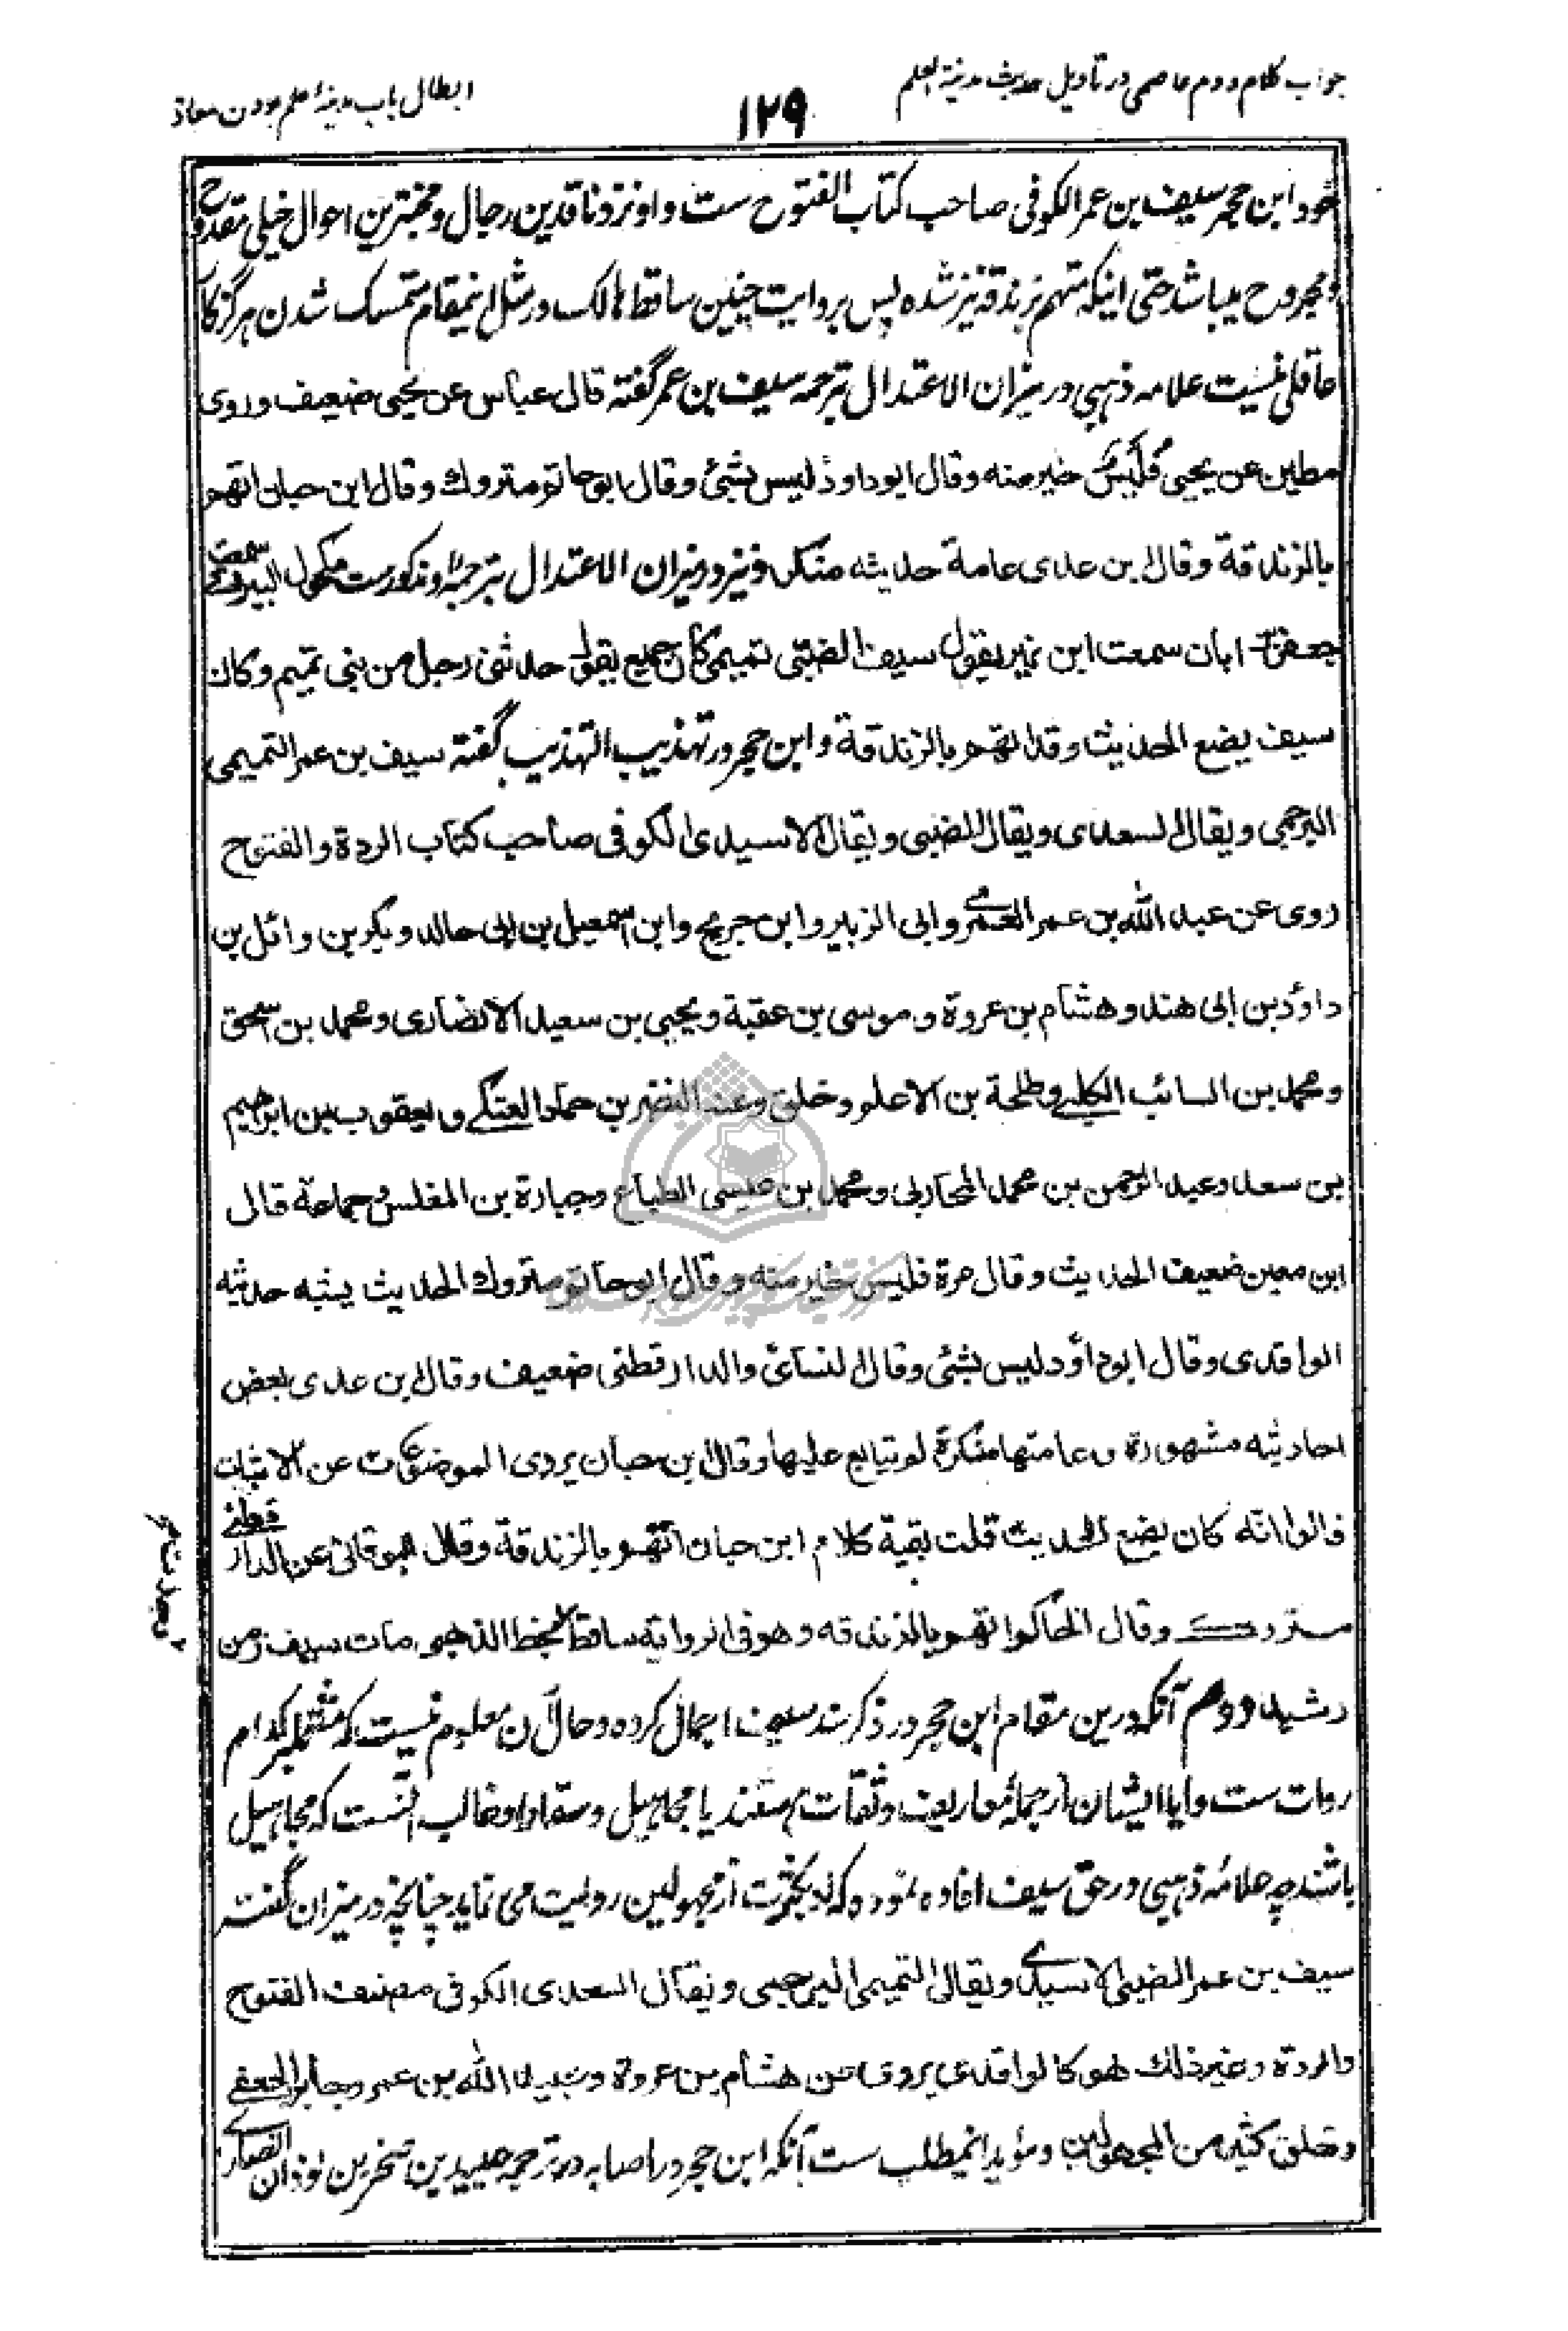 جواب کلام دوم عاصمی در تاویل حدیث مدینة العلم
۱۲۹
ابطال باب مدینۂ علم بودن معاذ
خود ابن حجر سیف بن عمر الکوفی صاحب کتاب الفتوح ست و او نزد ناقدین رجال و مختبرین احوال خیلی مقدوح
و مجروح میباشد حتی اینکه متهم بزندقه نیز شده پس بروایت چنین ساقط هالک در مثل اینمقام متمسک شدن هرگز کار
عاقلی نیست علامه ذهبی در میزان الاعتدال بترجمه سیف بن عمر گفته قال عباس عن یحیی ضعیف وروی
مطین عن یحیی فلیس خیر منه وقال ابو داود لیس بشئ وقال ابو حاتم متروك وقال ابن حبان اتهم
بالزندقة وقال ابن عدی عامة حدیثه منکر و نیز در میزان الاعتدال بترجمۀ او مذکورست مکحول البیروتی سمعت
جعفر بن ابان سمعت ابن نمیر یقول سیف الضبّی تمیمی کان جمیع یقول حدثنی رجل من بنی تمیم وکان
سیف یضع الحدیث وقد اتهم بالزندقة و ابن حجر در تهذیب التهذیب گفته سیف بن عمر التمیمی
البرجمی ویقال السعدی ویقال الضبی ویقال الاسیدی الکوفی صاحب کتاب الردة والفتوح
روی عن عبد الله بن عمر العمری وابی الزبیر وابن جریج وابن اسمعیل بن ابی خالد وبکر بن وائل بن
داؤد بن ابی هند وهشام بن عروة وموسی بن عقبة ویحیی بن سعید الانصاری ومحمد بن اسحق
ومحمد بن السائب الکلبی وطلحة بن الاعلم وخلق وعنه النضر بن حماد العتکی ویعقوب بن ابراهیم
بن سعد وعبد الرحمن بن محمد المحاربی ومحمد بن عیسی الطباع وجبارة بن المغلس وجماعة قال
ابن معین ضعیف الحدیث وقال مرة فلیس خیر منه وقال ابو حاتم متروك الحدیث یشبه حدیثه
الواقدی وقال ابو داؤد لیس بشئ وقال النسائی والدارقطنی ضعیف وقال ابن عدی بعض
احادیثه مشهورة وعامتها منکرة لم یتابع علیها وقال ابن حبان یروی الموضوعات عن الاثبات
قالوا انّه کان یضع الحدیث قلت بقیة کلام ابن حبان اتّهم بالزندقة وقال البرقانی عن الدارقطنی
متروك وقال الحاکم اتهم بالزندقه وهو فی الروایة ساقط بخط الذهبی مات سیف زمن
رشید دوم آنکه درین مقام ابن حجر در ذکر سند سیف اجمال کرده و حال آن معلوم نیست که مشتمل بر کدام
روات ست و آیا ایشان از جملۀ معاریف و ثقات هستند یا مجاهیل و غالب آنست که مجاهیل
باشند چه علامۀ ذهبی در حق سیف افاده نموده که او بکثرت از مجهولین روایت می نماید چنانچه در میزان گفته
سیف بن عمر الضبی الاسیدی ویقال التمیمی البرجمی ویقال السعدی الکوفی مصنف الفتوح
والردة وغیر ذلك هو کالواقدی یروی عن هشام بن عروة وعبید الله بن عمر وجابر الجعفی
وخلق کثیر من المجهولین و مؤید اینمطلب ست آنکه ابن حجر در اصابه در ترجمه عبید بن صخر بن لوذان الانصاری